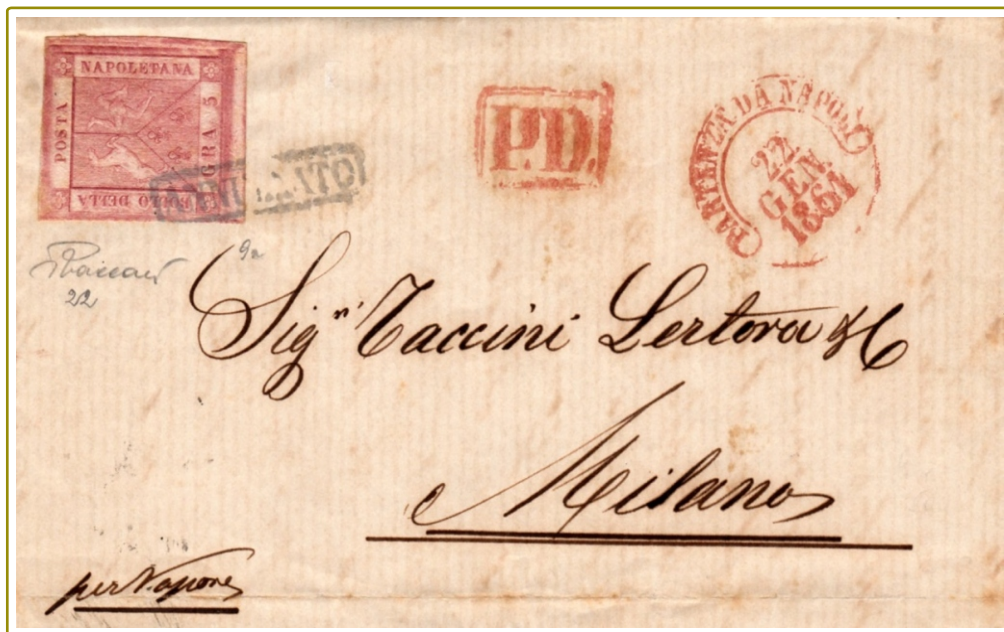 POSTA
NAPOLETANA
GRA 5
BOLLO DELLA
P.D.
PARTENZA DA NAPOLI
22
GEN
1861
9a
22
Sig.ri Taccini Lertora & C
Milano
per Vapore